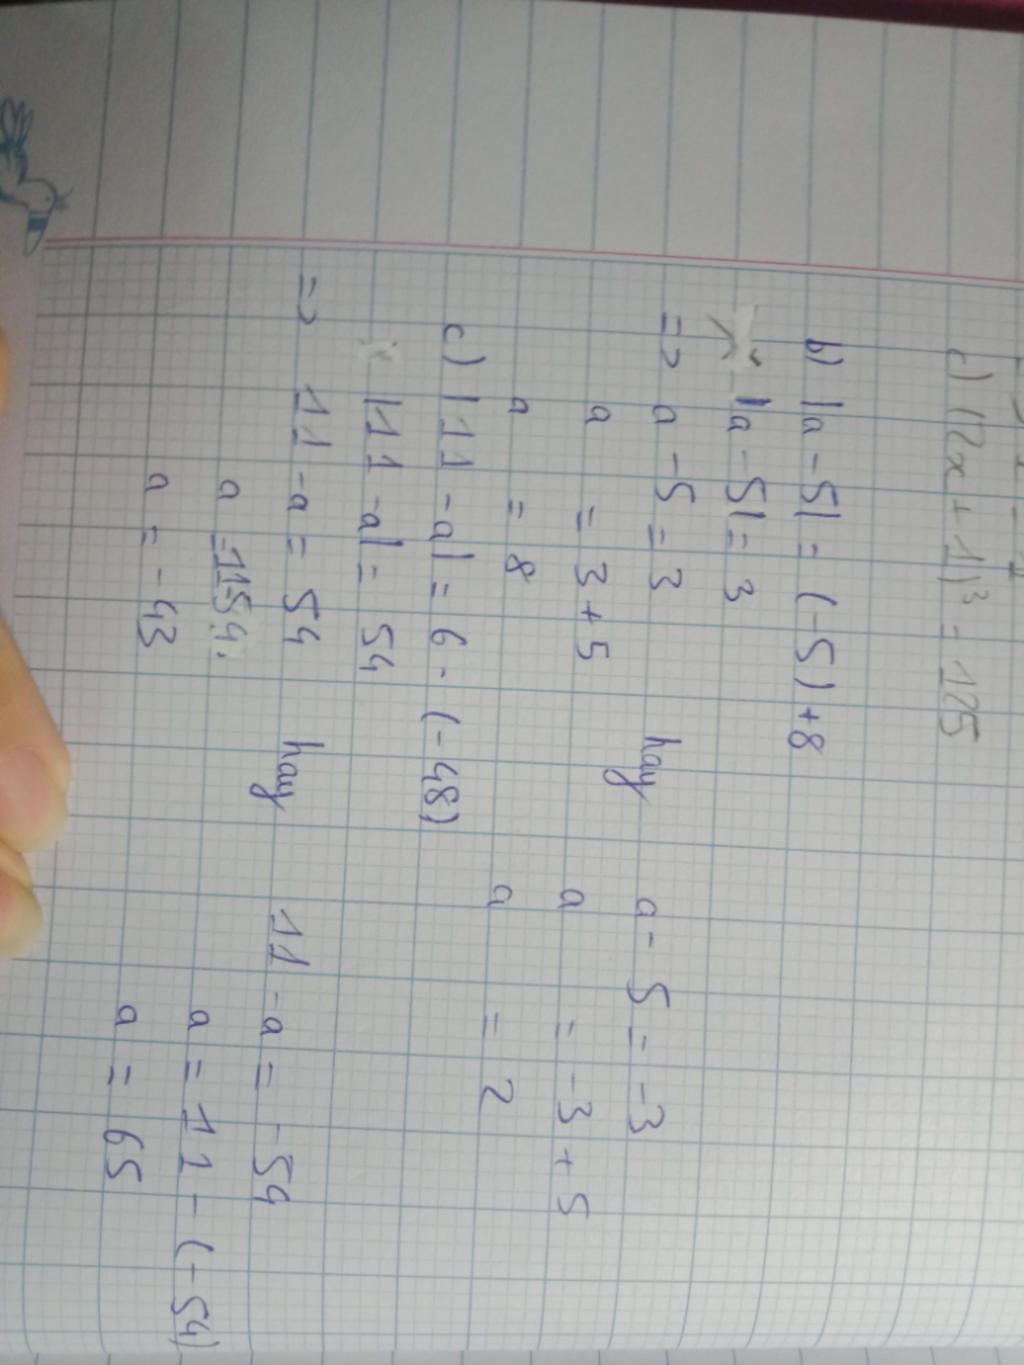 c) (2x + 1)³ = 125
b) |a - 5| = (-5) + 8
|a - 5| = 3
=> a - 5 = 3 hay a - 5 = -3
a = 3 + 5 a = -3 + 5
a = 8 a = 2
c) |11 - a| = 6 - (-48)
|11 - a| = 54
=> 11 - a = 54 hay 11 - a = -54
a = 11-54 a = 11 - (-54)
a = -43 a = 65